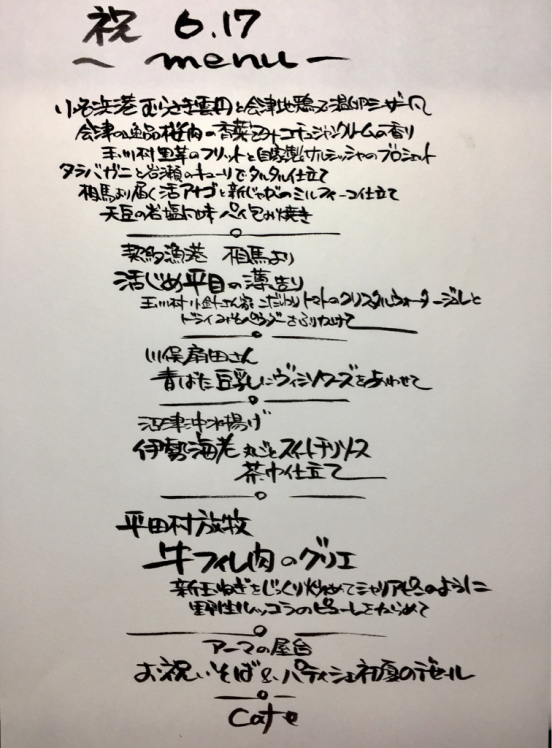 祝 6.17
～ menu ー
小名浜港 むらさき雲丹と会津地鶏の温卵シーザー风
会津の馬肉の香菜
玉川村里芋のフリットと自家製サルシッチャのブロシェット
タラバガニと岩瀬のキューリでタルタル仕立て
相馬より届く活アナゴと新じゃがのミルフィーユ仕立て
天豆の岩塩風味 パイ包み焼き
漁港 相馬より
活じめ平目の薄造り
玉川村小針さん家こだわりトマトのクリスタルウォータージュレと
ドライ パウダーをふりかけて
川俣 さん
青ばた豆乳にヴィシソワーズをあわせて
沼津沖水揚げ
伊勢海老 丸ごとスイートチリソース
茶巾仕立て
平田村放牧
牛フィレ肉のグリエ
新玉ねぎをじっくり炒めてシャリアピンのように
野生ルッコラのピューレをからめて
アーマの屋台
お祝いそば & パティシェ初夏のデセール
cafe